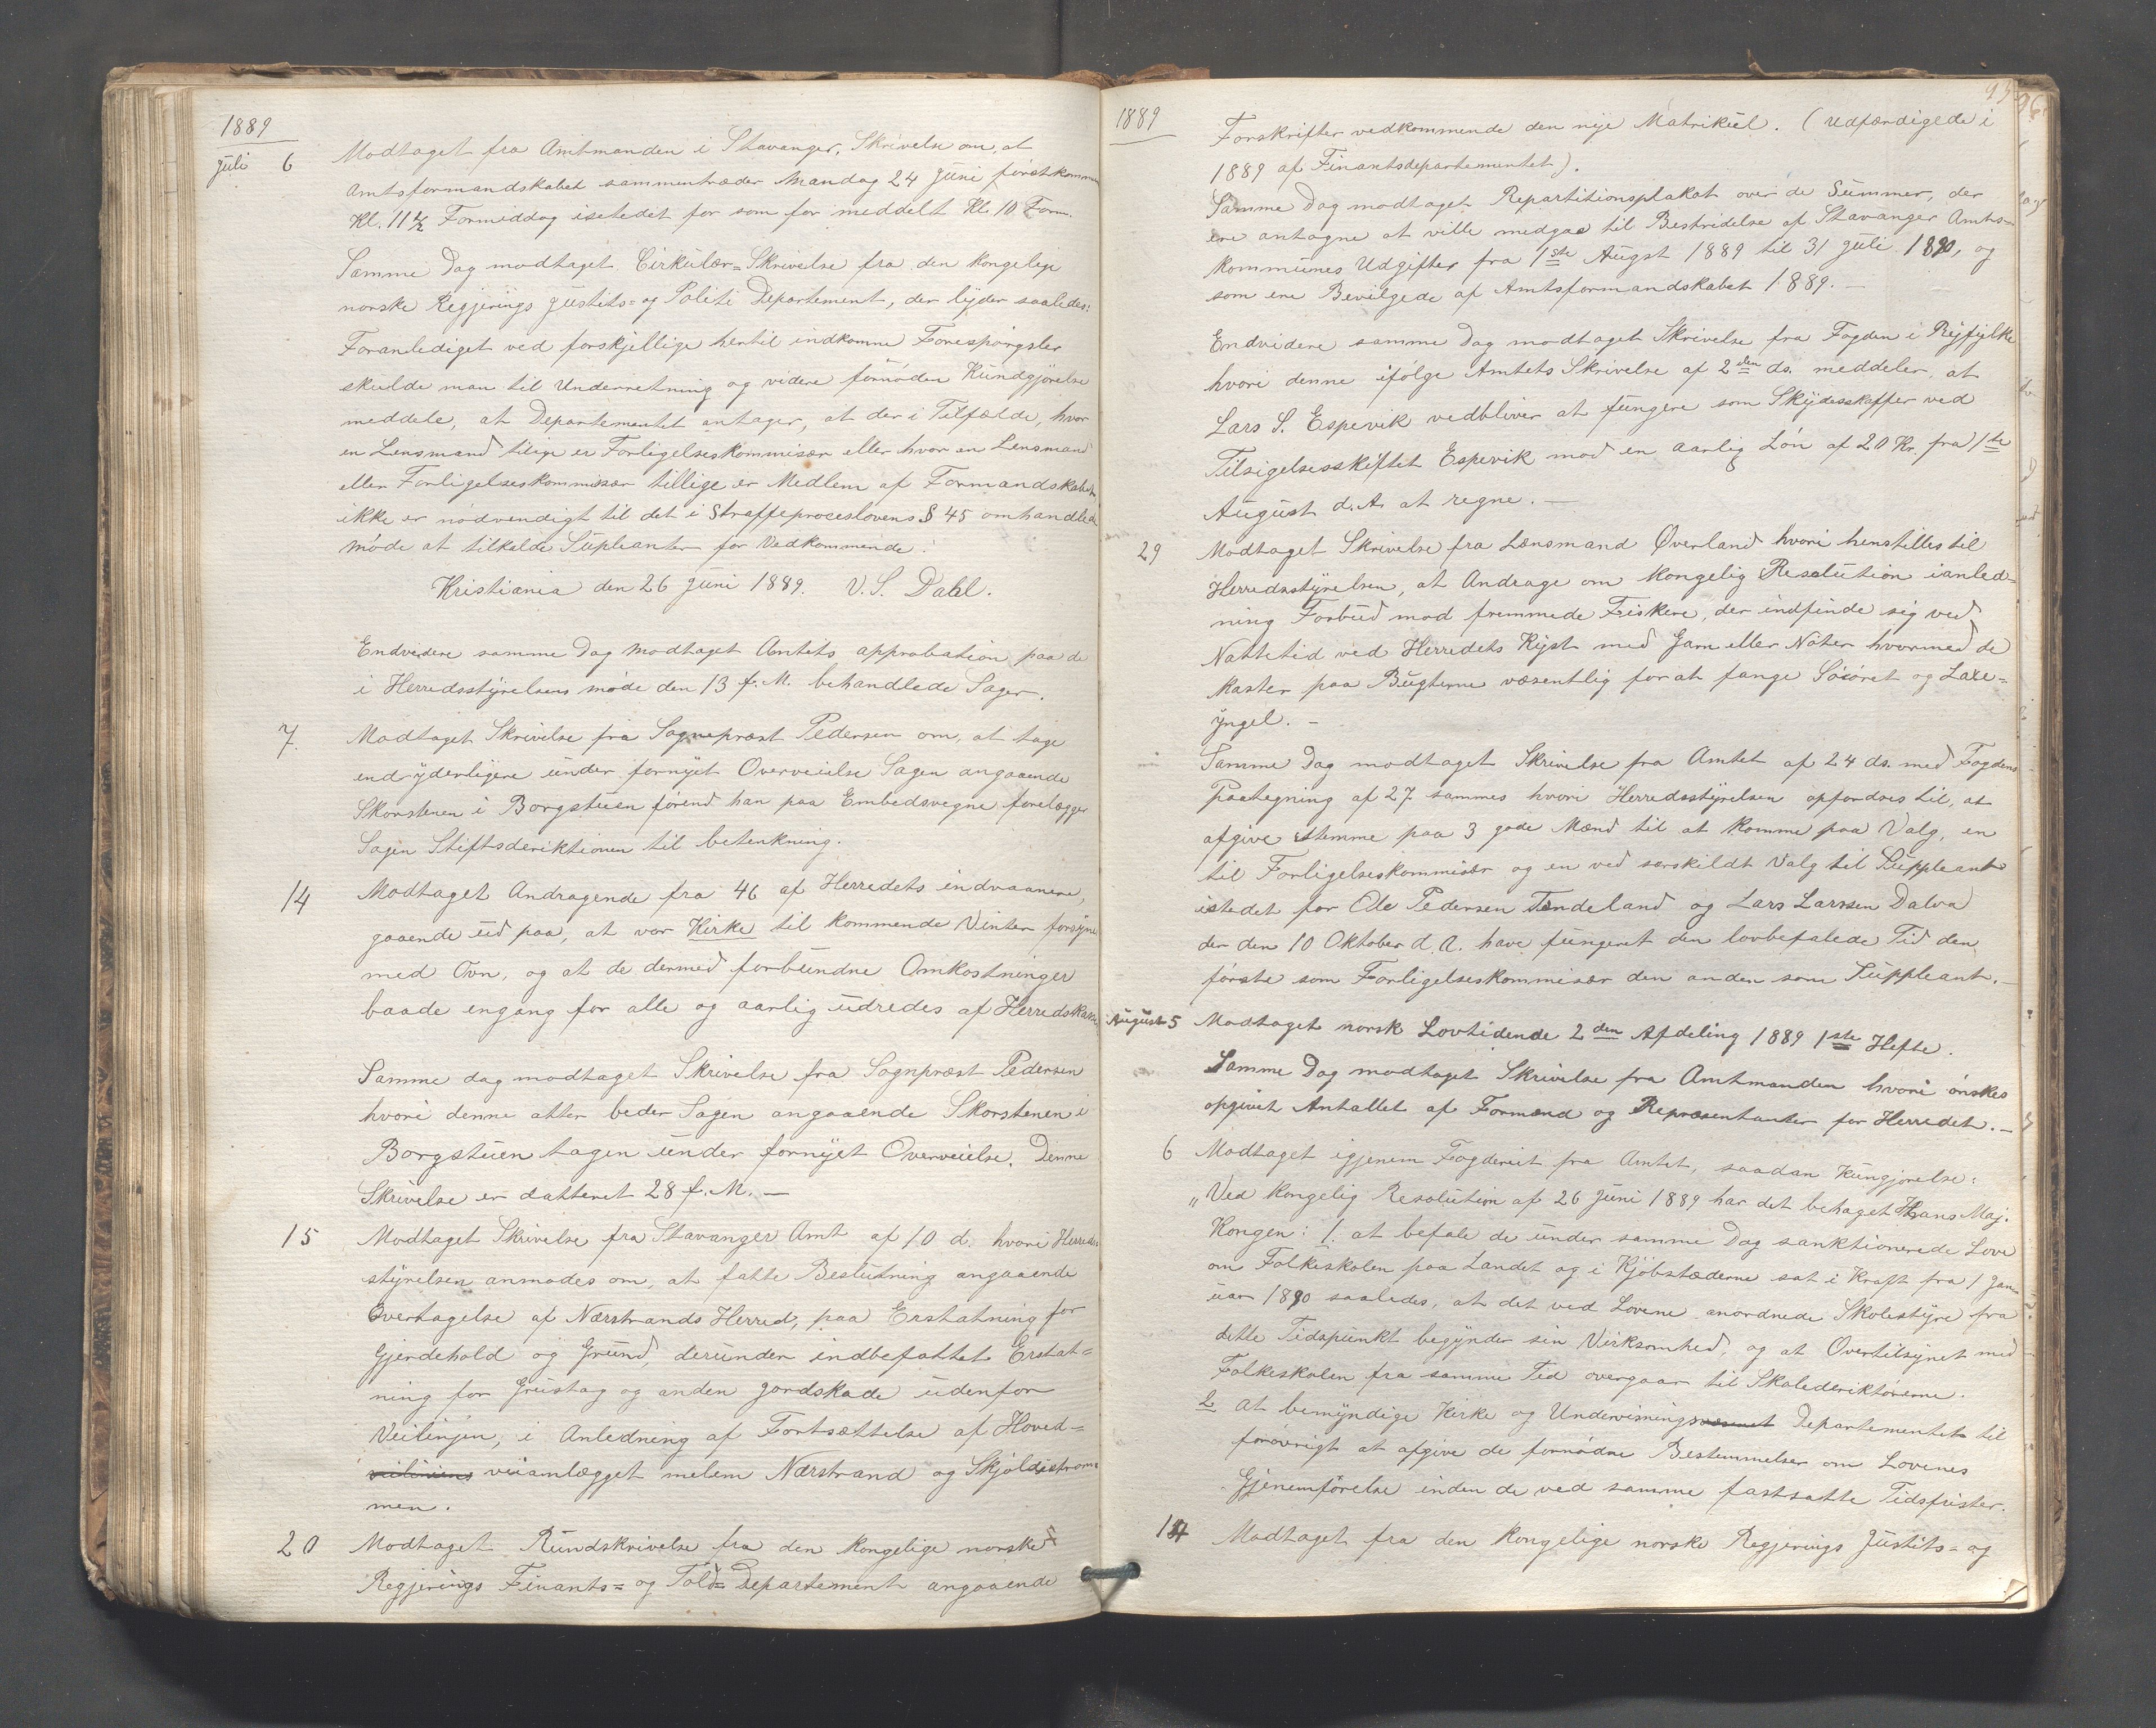 1889
Juli 6 Modtaget fra Amtmanden i Stavanger, Skrivelse om, at
Amtsformandskabet sammentræder Mandag 24 Juni førstkommen
Kl. 11 1/2 Formiddag istedet for som før meddelt Kl. 10 Form.
Samme Dag modtaget Cirkulær=Skrivelse fra den kongelige
norske Regjerings Justits= og Politi Departement, der lyder saaledes:
Foranlediget ved forskjellige hertil indkomne Forespørgsler
skulde man til Underretning og videre fornøden Kundgjørelse
meddele, at Departementet antager, at der i Tilfælde, hvor
en Lensmand tilige er Forligelseskommisær eller hvor en Lensmand
eller Forligelseskommissær tillige er Medlem af Formandskabet,
ikke er nødvendigt til det i Straffeproceslovens § 45 omhandlede
møde at tilkalde Supleanter for Vedkommende.
Kristiania den 26 Juni 1889. V. S. Dahl.
Endvidere samme Dag modtaget Amtets approbation paa de
i Herredsstyrelsens møde den 13 f. M. behandlede Sager.
7. Modtaget Skrivelse fra Sognepræst Pedersen om, at tage
end yderligere under fornyet Overveielse Sagen angaaende
Skorstenen i Borgstuen førend han paa Embedsvegne forelægger
Sagen Stiftsderiktionen til betenkning.
14 Modtaget Andragende fra 46 af Herredets indvaanere,
gaaende ud paa, at vor Kirke til kommende Vinter forsyne
med Ovn, og at de dermed forbundne Omkostninger
baade engang for alle og aarlig udredes af Herredskassen
Samme dag modtaget Skrivelse fra Sognpræst Pedersen
hvori denne atter beder Sagen angaaende Skorstenen i
Borgstuen tagen under fornyet Overveielse. Denne
Skrivelse er datteret 28 f. M. —
15 Modtaget Skrivelse fra Stavanger Amt af 10 d. hvori Herreds=
styrelsen anmodes om, at fatte Beslutning angaaende
Overtagelse af Nærstrands Herred, paa Erstatning for
Gjerdehold og Grund, derunder indbefattet Erstat=
ning for Grustag og anden Jordskade udenfor
Veilinjen, i Anledning af Fortsættelse af Hoved=
veiliniens veianlægget melem Nærstrand og Skjoldestrøm=
men.
20 Modtaget Rundskrivelse fra den kongelige norske
Regjerings Finants= og Told= Departement angaaende
1889
Forskrifter vedkommende den nye Matrikul. (Udfærdigede i
1889 af Finantsdepartementet).
Samme Dag modtaget Repartitionsplakat over de Summer, der
ere antagne at ville medgaa til Bestridelse af Stavanger Amts=
kommunes Udgifter fra 1ste Augst 1889 til 31 Juli 1890, og
som ere Bevilgede af Amtsformandskabet 1889. —
Endvidere samme Dag modtaget Skrivelse fra Fogden i Ryfylke
hvori denne ifølge Amtets Skrivelse af 2den ds. meddeler, at
Lars S. Espevik vedbliver at fungere som Skydsskaffer ved
Tilsigelsesskiftet Espevik mod en aarlig Løn af 20 Kr. fra 1ste
August d. A. at regne. —
29 Modtaget Skrivelse fra Lensmand Øverland hvori henstilles til
Herredsstyrelsen, at Andrage om kongelig Resolution ianled=
ning Forbud mod fremmede Fiskere, der indfinde sig ved
Nattetid ved Herredets Kyst med Garn eller Nøter hvormed de
Kaster paa Bugterne væsentlig for at fange Søøret og Laxe=
yngel. —
Samme Dag modtaget Skrivelse fra Amtet af 24 ds. med Fogdens
Paategning af 27 sammes hvori Herredsstyrelsen opfordres til, at
afgive stemme paa 3 gode Mænd til at komme paa Valg, en
til Forligelseskommisær og en ved særskildt Valg til Suppleant
istedet for Ole Pedersen Tendeland og Lars Larssen Dalva
der den 10 Oktober d. A. have fungeret den lovbefalede Tid den
første som Forligelseskommisær den anden som Suppleant. —
August 5 Modtaget norsk Lovtidende 2den Afdeling 1889 1ste Hefte.
Samme Dag modtaget Skrivelse fra Amtmanden hvori ønskes
opgivet Antallet af Formænd og Repræsentanter for Herredet. —
6 Modtaget igjenem Fogderiet fra Amtet, saadan Kungjørelse:
„Ved kongelig Resolution af 26 Juni 1889 har det behaget Hans Maj.
Kongen: 1. at befale de under samme Dag sanktionerede Love
om Folkeskolen paa Landet og i Kjøbstæderne sat i Kraft fra 1 Jan=
uar 1890 saaledes, at det ved Lovene anordnede Skolestyre fra
dette Tidspunkt begynder sin Virksomhed, og at Overtilsynet med
Folkeskolen fra samme Tid overgaar til Skolederiktørerne.
2 at bemyndige Kirke og Undervisningsvæsenet Departementet til
forøvrigt at afgive de fornødne Bestemmelser om Lovenes
Gjenemførelse inden de ved samme fastsatte Tidsfrister.
14 Modtaget fra den kongelige norske Regjerings Justits= og